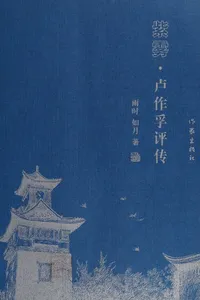 紫雾·卢作孚评传
雨时 如月 著
作家出版社